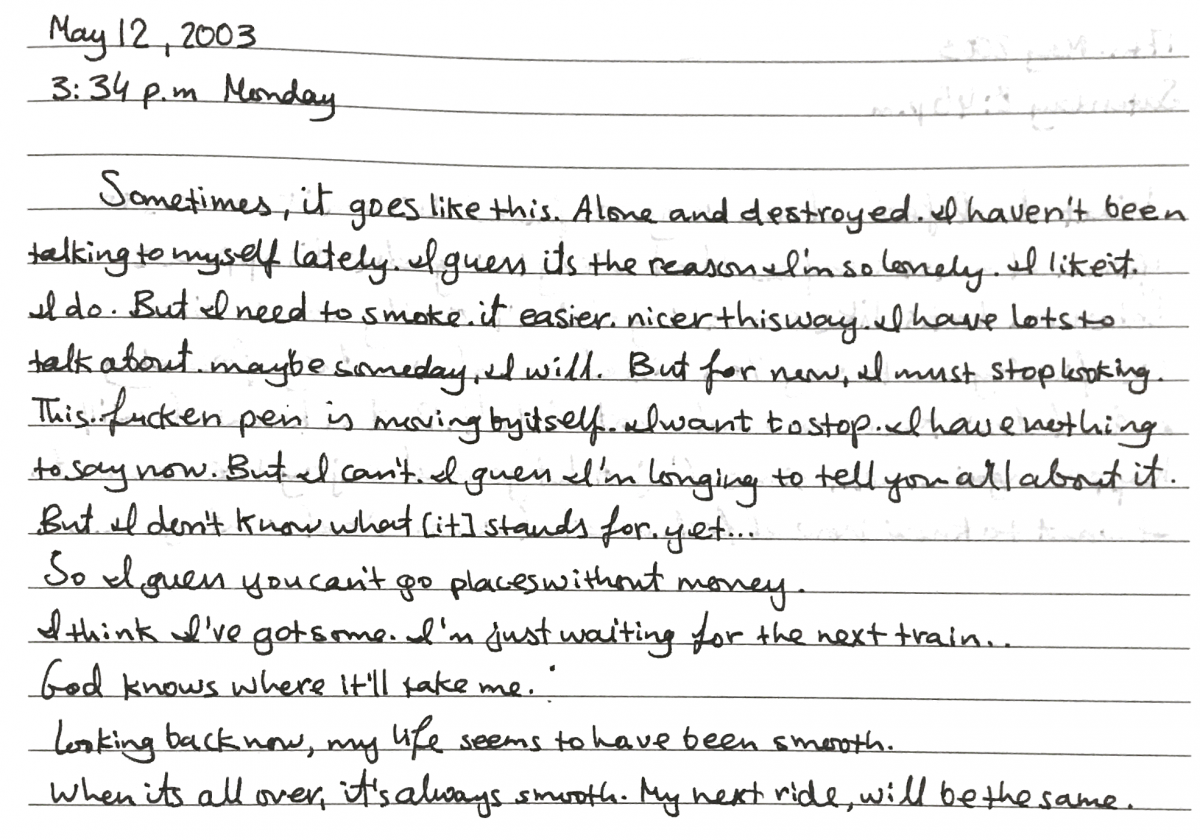 May 12, 2003
3:34 p.m Monday
Sometimes, it goes like this. Alone and destroyed. I haven't been
talking to myself lately. I guess its the reason I'm so lonely. I like it.
I do. But I need to smoke. it easier. nicer this way. I have lots to
talk about. maybe someday, I will. But for now, I must stop looking.
This.. fucken pen is moving by itself. I want to stop. I have nothing
to say now. But I can't. I guess I'm longing to tell you all about it.
But I don't know what [it] stands for. yet...
So I guess you can't go places without money.
I think I've got some. I'm just waiting for the next train..
God knows where it'll take me.
Looking back now, my life seems to have been smooth.
When its all over, it's always smooth. My next ride, will be the same.